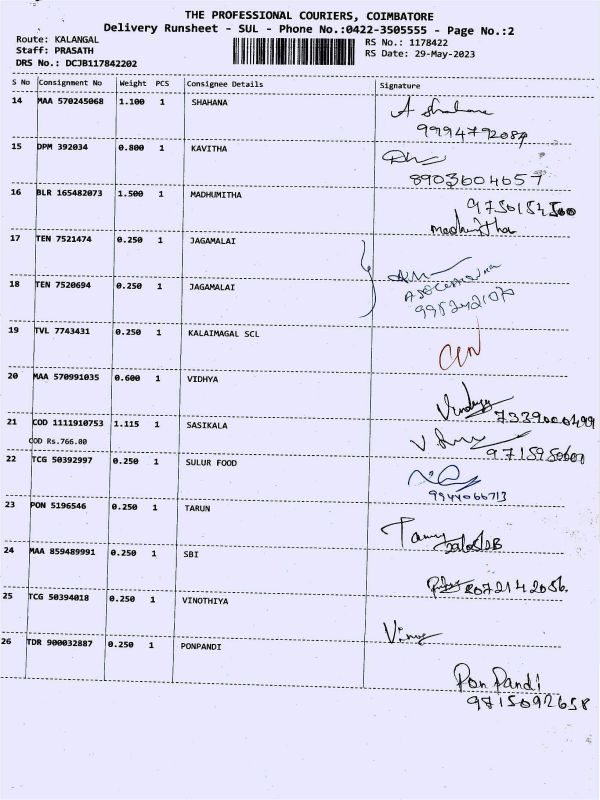 THE PROFESSIONAL COURIERS, COIMBATORE
Delivery Runsheet - SUL - Phone No.:0422-3505555 - Page No.:2
Route: KALANGAL
Staff: PRASATH
DRS No.: DCJB117842202
RS No.: 1178422
RS Date: 29-May-2023
S No Consignment No Weight PCS Consignee Details Signature
14 MAA 570245068 1.100 1 SHAHANA A Shahana
9994792087
15 DPM 392034 0.800 1 KAVITHA
8903604657
16 BLR 165482073 1.500 1 MADHUMITHA
madhumitha
17 TEN 7521474 0.250 1 JAGAMALAI
18 TEN 7520694 0.250 1 JAGAMALAI
19 TVL 7743431 0.250 1 KALAIMAGAL SCL
20 MAA 570991035 0.600 1 VIDHYA
7339000499
21 COD 1111910753 1.115 1 SASIKALA
COD Rs.766.00
22 TCG 50392997 0.250 1 SULUR FOOD
9944066713
23 PON 5196546 0.250 1 TARUN
24 MAA 859489991 0.250 1 SBI
8072142056.
25 TCG 50394018 0.250 1 VINOTHIYA
26 TDR 900032887 0.250 1 PONPANDI
Pon Pandi
9715092658